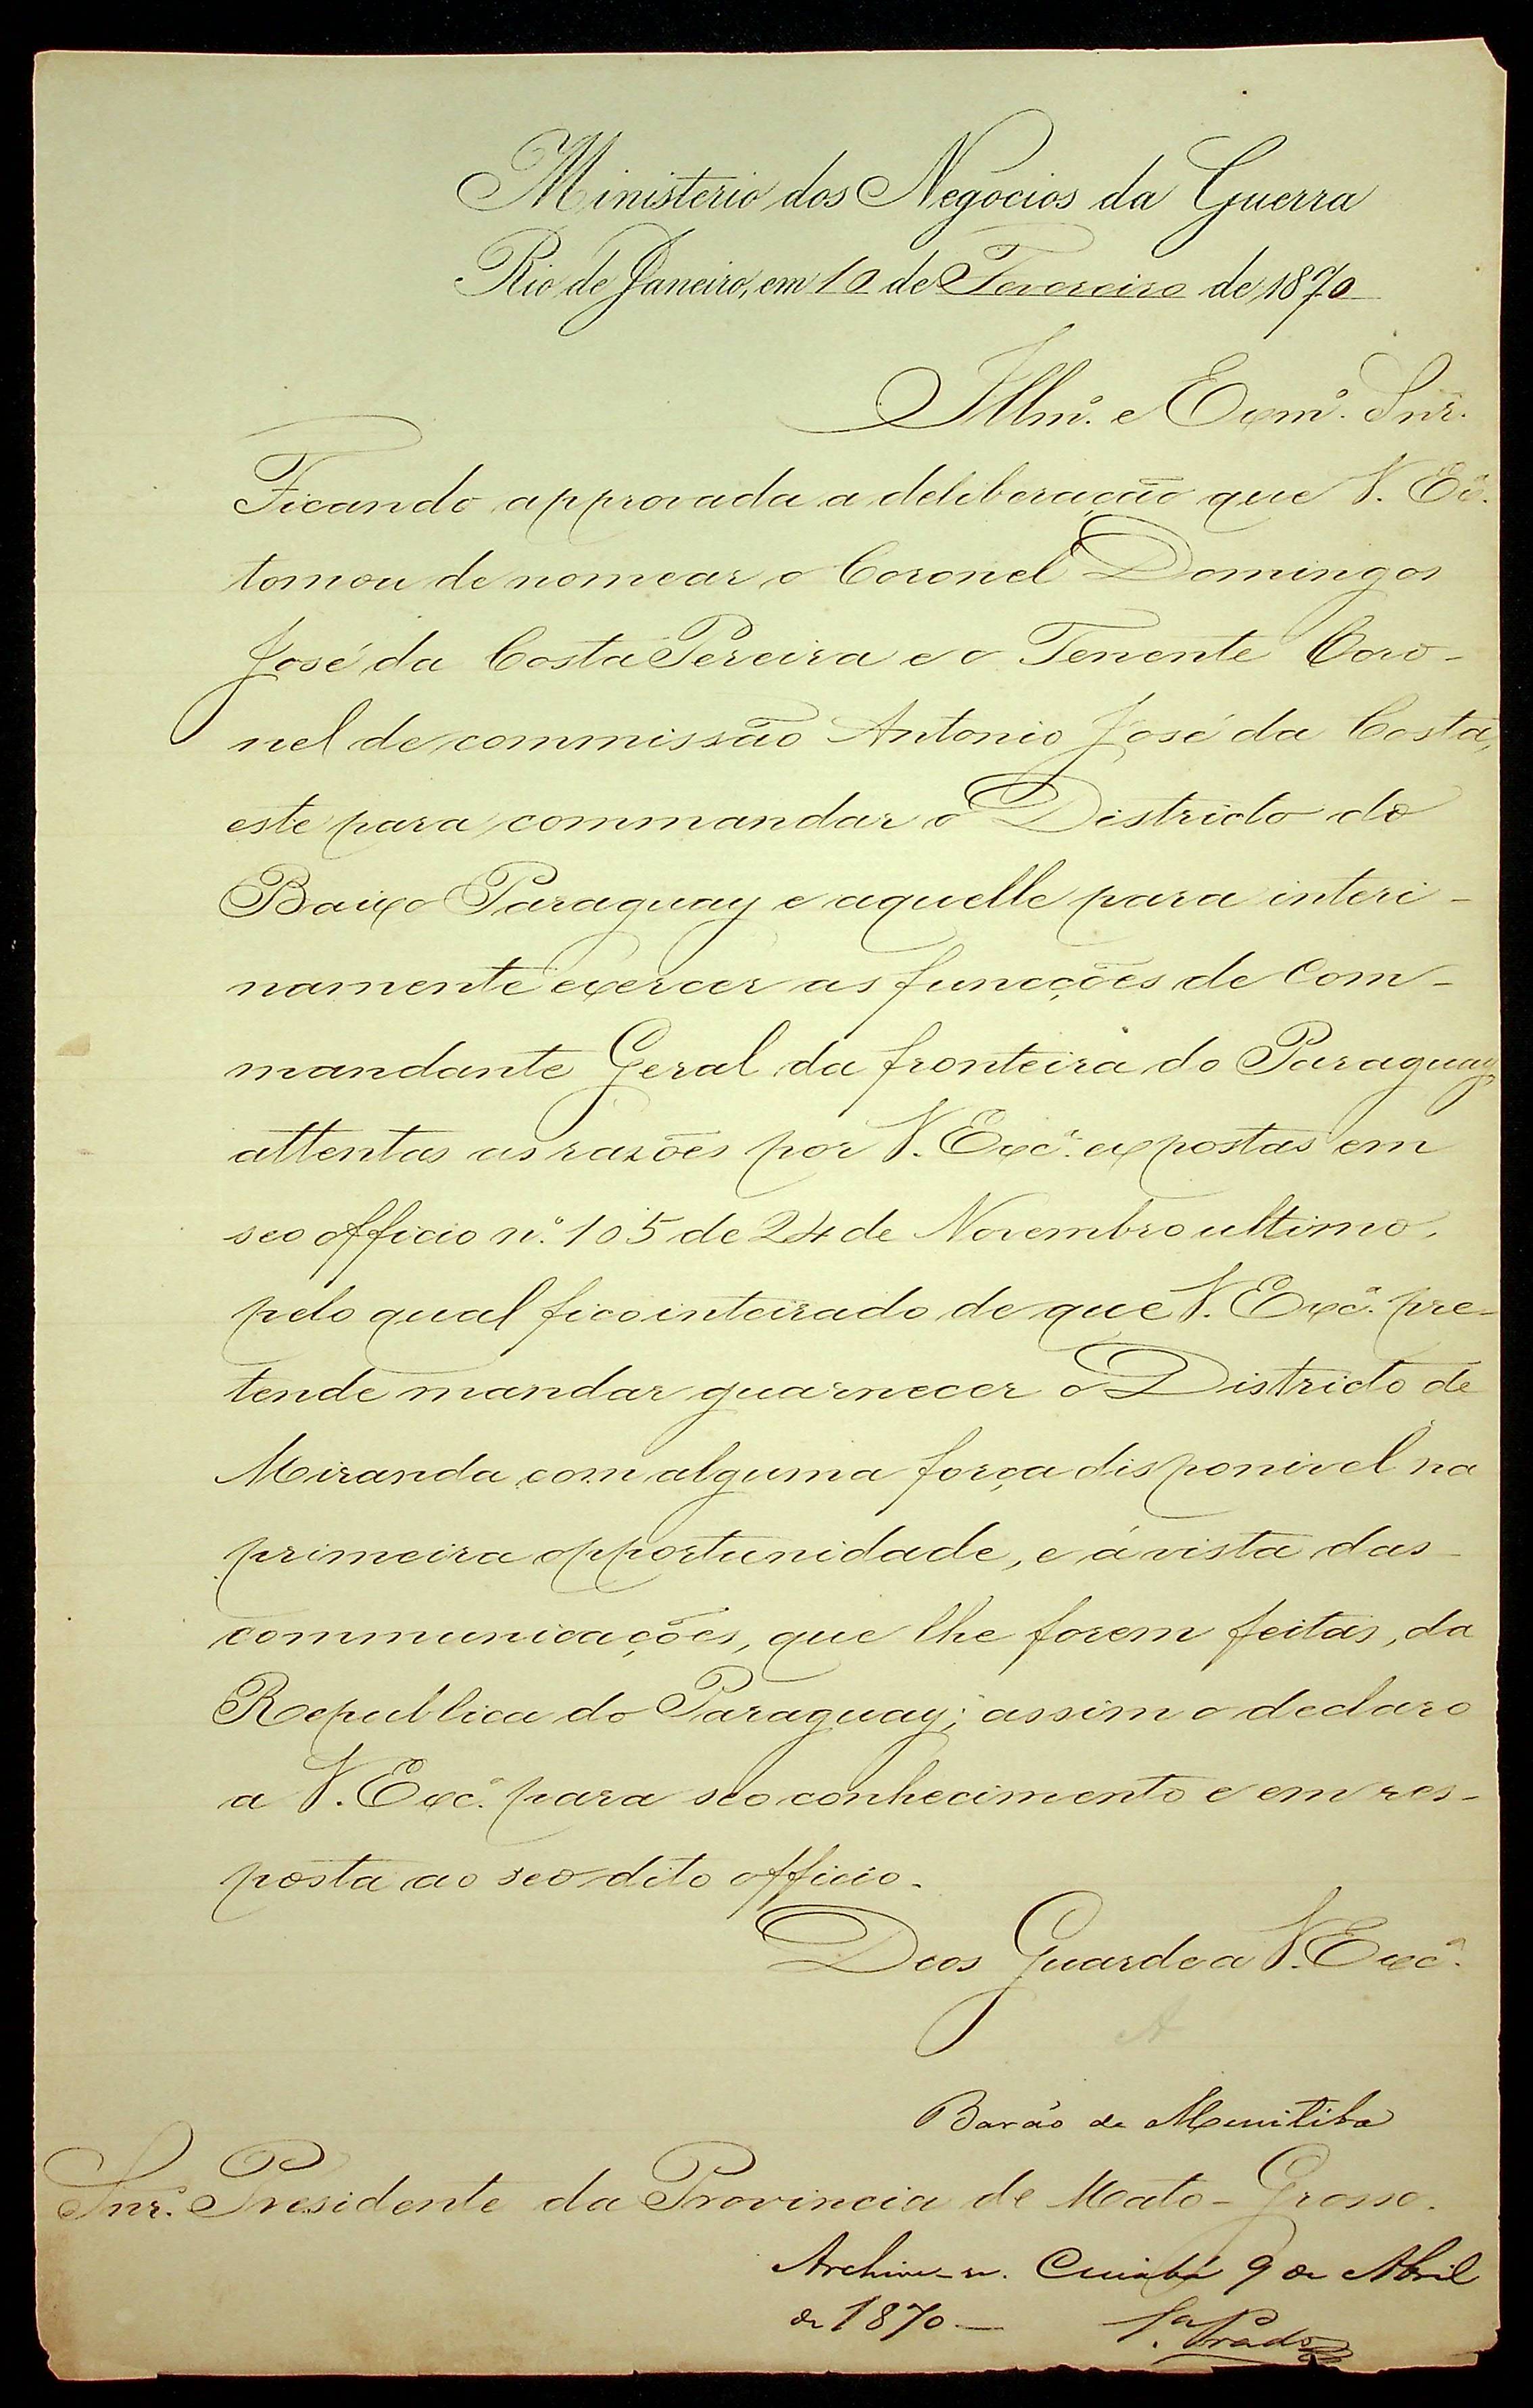 Ministerio dos Negocios da Guerra
Rio de Janeiro, em 10 de Fevereiro de 1870
Illmº. e Exmº. Snr.
Ficando approvada a deliberação que V. Exª.
tomou de nomear o Coronel Domingos
José da Costa Pereira e o Tenente Coro-
nel de commissão Antonio José da Costa,
este para commandar o Districto do
Baixo Paraguay e aquelle para interi-
namente exercer as funcções de Com-
mandante Geral da fronteira do Paraguay,
attentas as razões por V. Excª. expostas em
seo officio nº. 105 de 24 de Novembro ultimo,
pelo qual fico inteirado de que V. Excª. pre-
tende mandar guarnecer o Districto de
Miranda com alguma força disponivel na
primeira opportunidade, e á vista das
communicações, que lhe forem feitas, da
Republica do Paraguay; assim o declaro
a V. Excª. para seo conhecimento e em res-
posta ao seo dito officio.
Deos Guarde a V. Excª.
Barão de Muritiba
Snr. Presidente da Provincia de Mato-Grosso.
Archive-se. Cuiabá 9 de Abril
de 1870 —
Prado